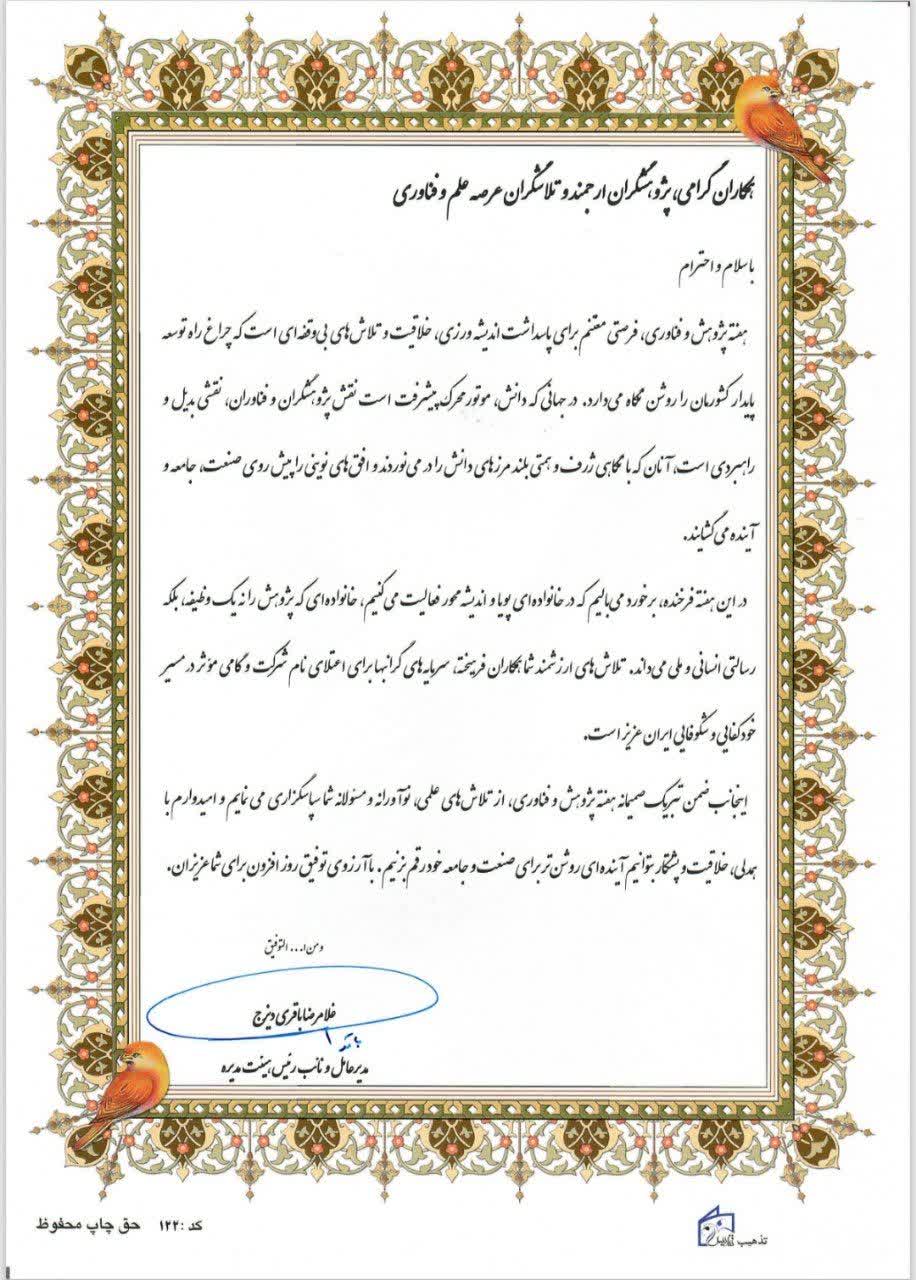 همکاران گرامی، پژوهشگران ارجمند و تلاشگران عرصه علم و فناوری
با سلام و احترام
هفته پژوهش و فناوری، فرصتی مغتنم برای پاسداشت اندیشه ورزی، خلاقیت و تلاش‌های بی‌وقفه‌ای است که چراغ راه توسعه
پایدار کشورمان را روشن نگاه می‌دارد. در جهانی که دانش، موتور محرک پیشرفت است نقش پژوهشگران و فناوران، نقشی بدیل و
راهبردی است، آنان که با نگاهی ژرف و همتی بلند مرزهای دانش را در می‌نوردند و افق‌های نوینی را پیش روی صنعت، جامعه و
آینده می‌گشایند.
در این هفته فرخنده، برخورد می‌بالیم که در خانواده‌ای پویا و اندیشه محور فعالیت می‌کنیم، خانواده‌ای که پژوهش را نه یک وظیفه، بلکه
رسالتی انسانی و ملی می‌داند. تلاش‌های ارزشمند شما همکاران فرهیخته، سرمایه‌های گرانبها برای اعتلای نام شرکت و گامی مؤثر در مسیر
خودکفایی و شکوفایی ایران عزیز است.
اینجانب ضمن تبریک صمیمانه هفته پژوهش و فناوری، از تلاش‌های علمی، نوآورانه و مسئولانه شما سپاسگزاری می نمایم و امیدوارم با
همدلی، خلاقیت و پشتکار بتوانیم آینده‌ای روشن تر برای صنعت و جامعه خود رقم بزنیم. با آرزوی توفیق روز افزون برای شما عزیزان.
و من ا... التوفیق
غلامرضا باقری دیزج
مدیرعامل و نائب رئیس هیئت مدیره
تذهیب
کد : ۱۲۲ حق چاپ محفوظ